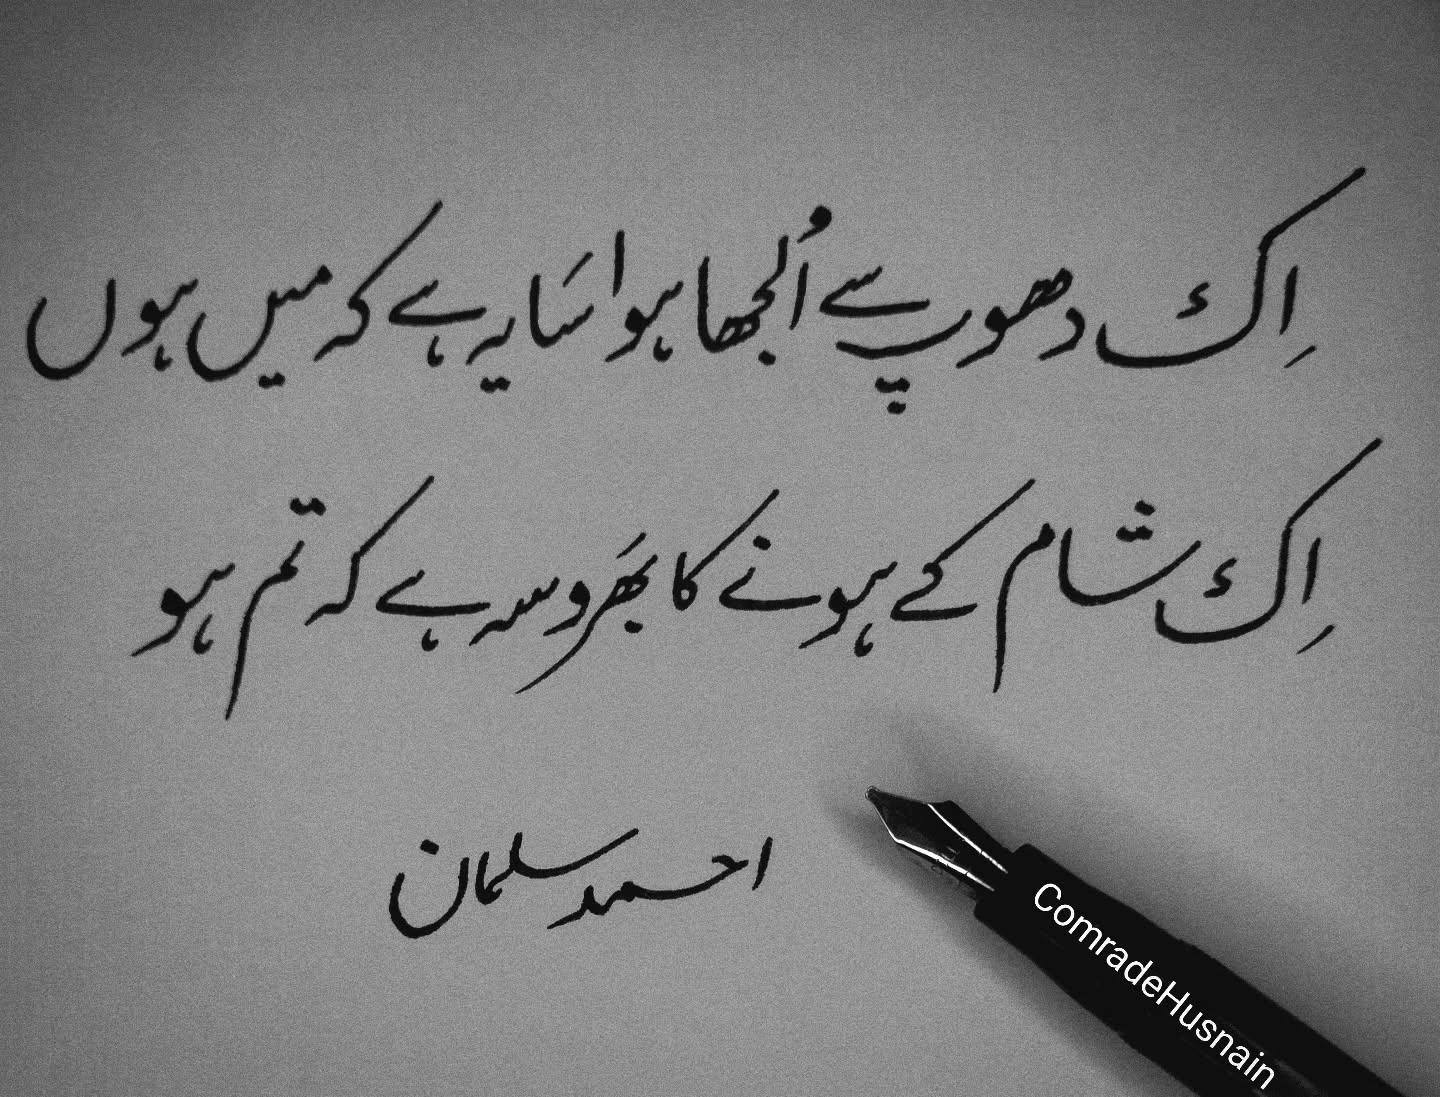 اِک دھوپ سے اُلجھا ہوا سَایہ ہے کہ میں ہوں
اِک شام کے ہونے کا بھَروسہ ہے کہ تم ہو
احمد سلمان
ComradeHusnain